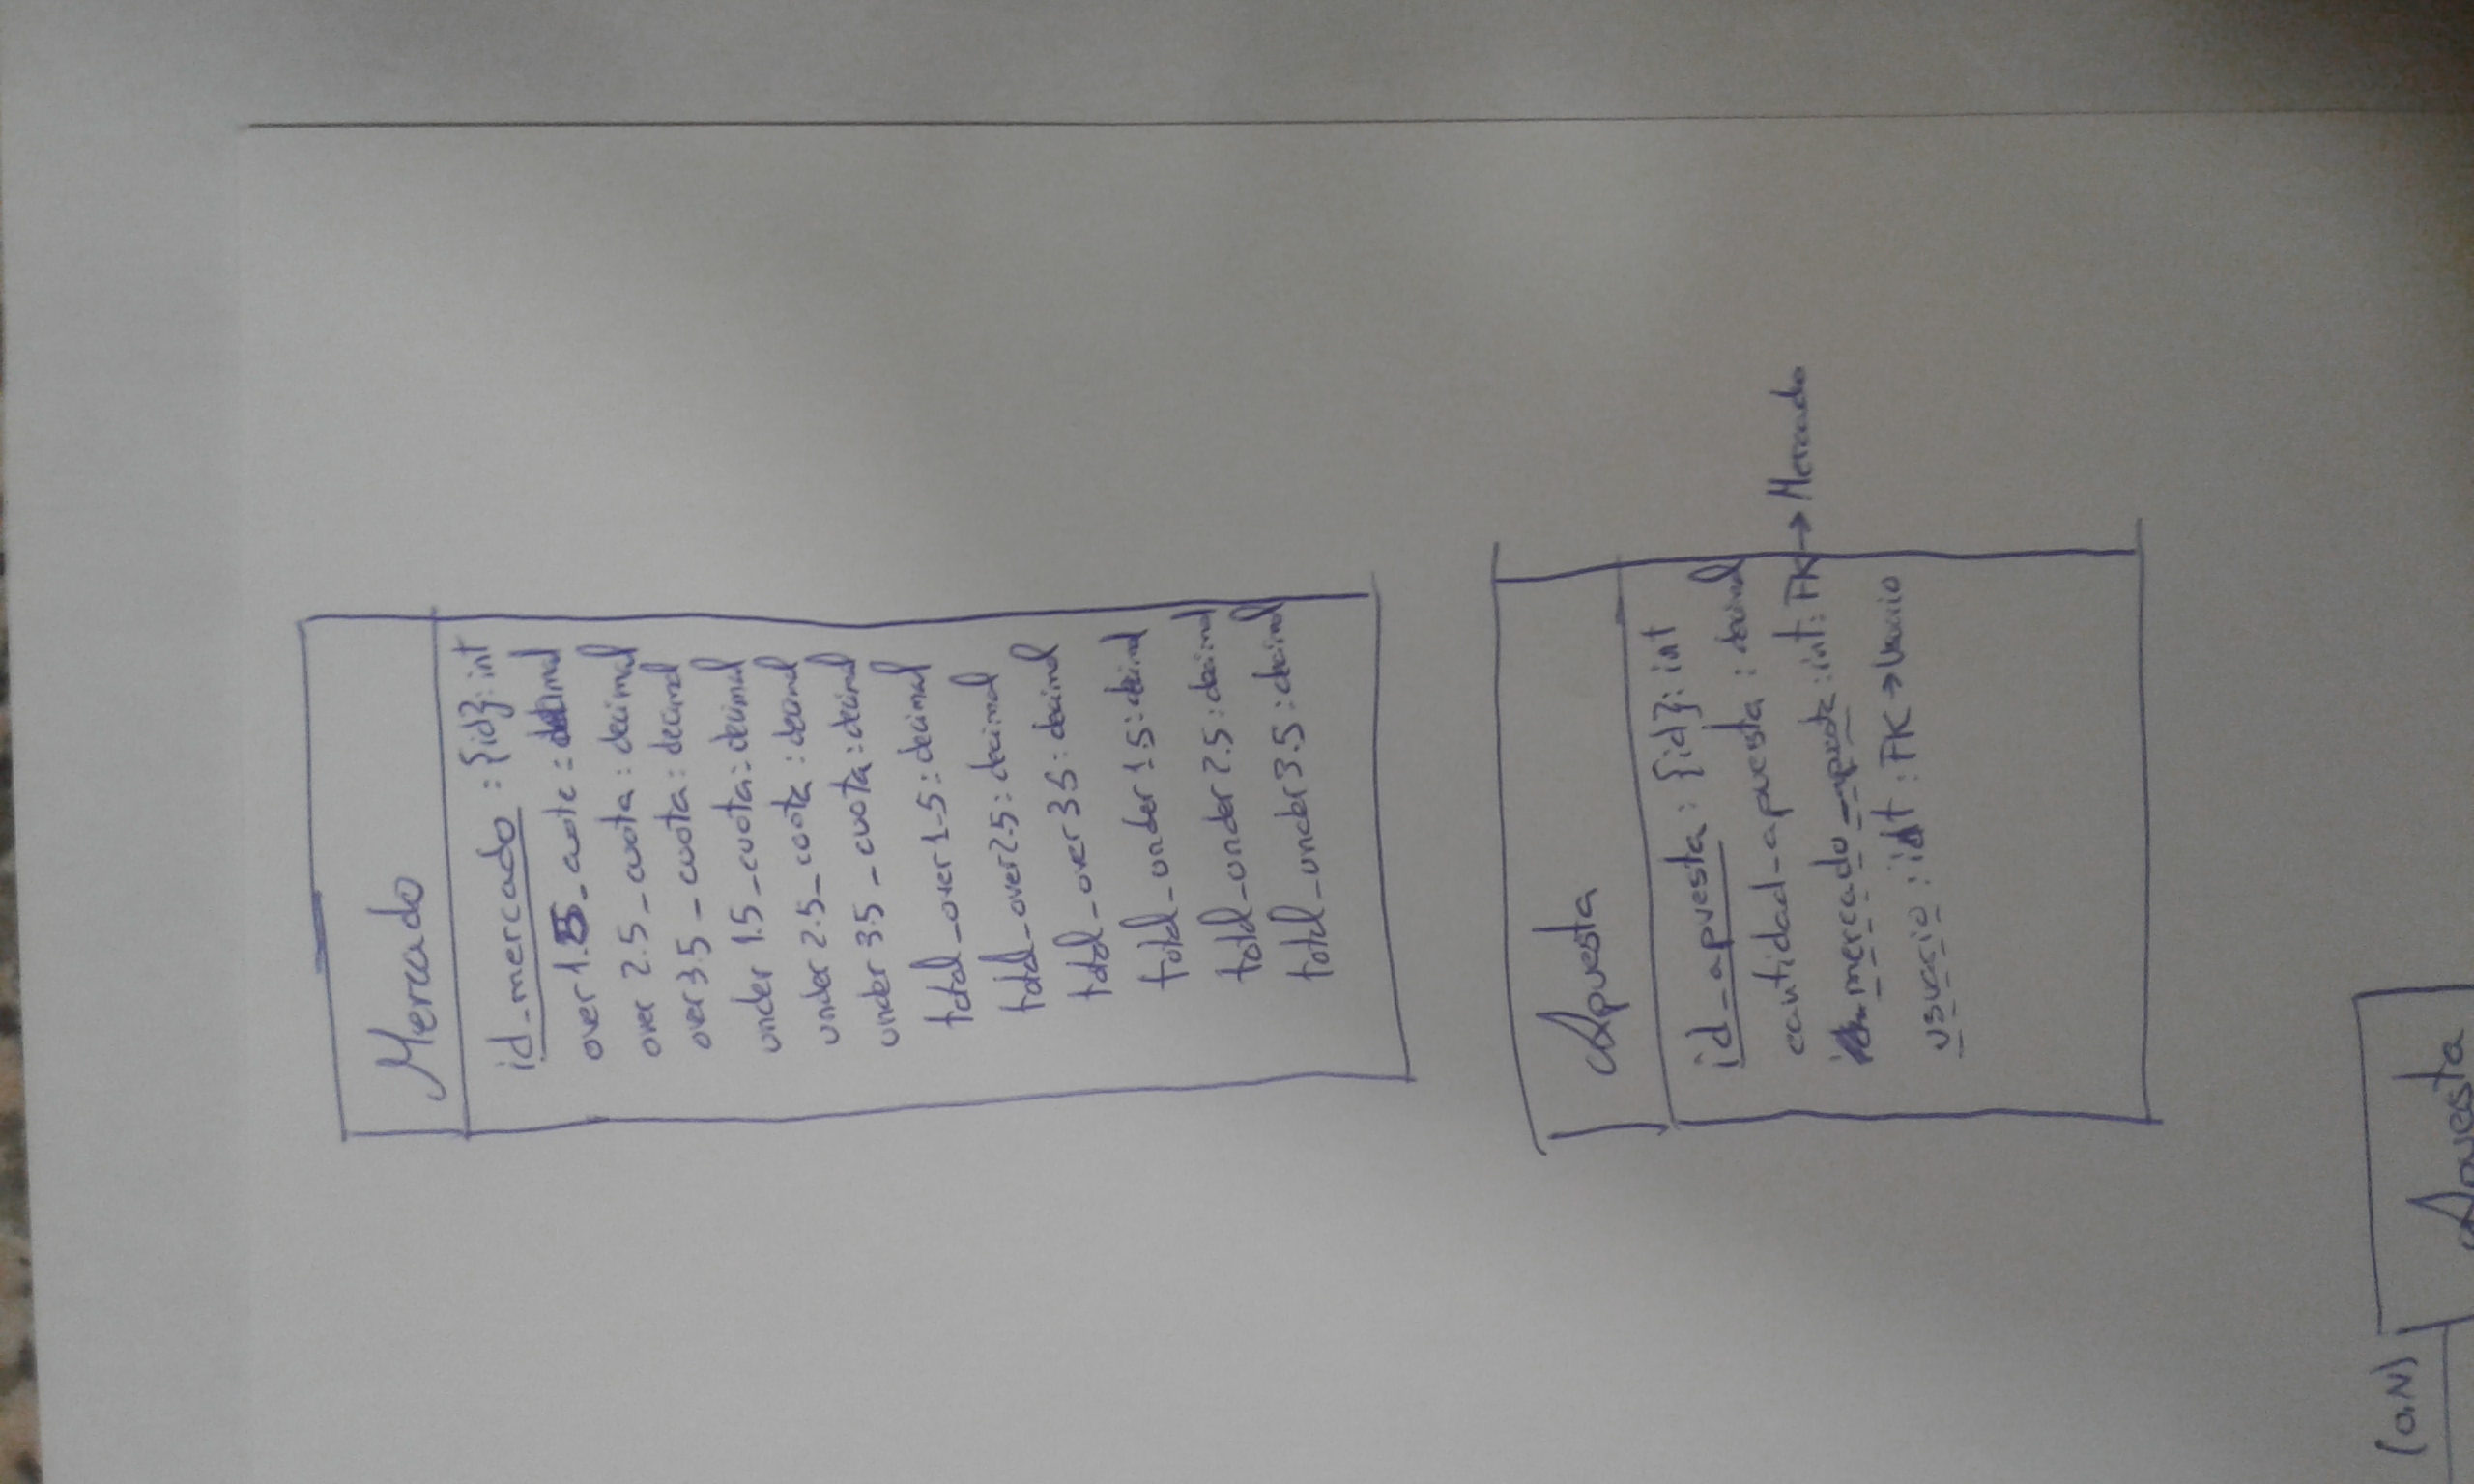 Mercado
id_mercado : {id}: int
over 1.5_cuota : decimal
over 2.5_cuota : decimal
over 3.5_cuota : decimal
under 1.5_cuota : decimal
under 2.5_cuota : decimal
under 3.5_cuota : decimal
total_over 1.5 : decimal
total_over 2.5 : decimal
total_over 3.5 : decimal
total_under 1.5 : decimal
total_under 2.5 : decimal
total_under 3.5 : decimal
Apuesta
id_apuesta : {id}: int
cantidad_apuesta : decimal
mercado : int : FK → Mercado
usuario : int : FK → Usuario
(0,N)
Apuesta